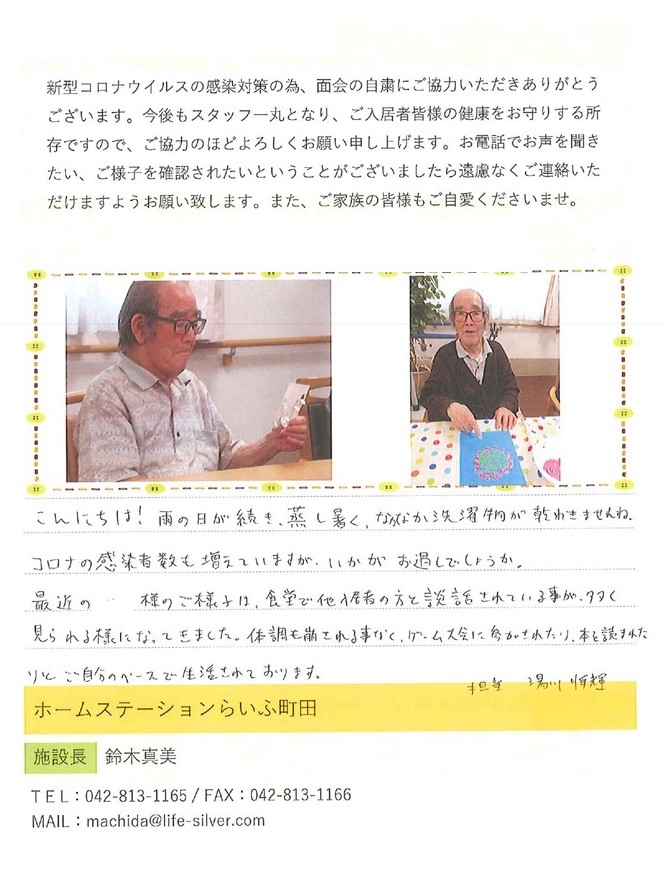 新型コロナウイルスの感染対策の為、面会の自粛にご協力いただきありがとう
ございます。今後もスタッフ一丸となり、ご入居者皆様の健康をお守りする所
存ですので、ご協力のほどよろしくお願い申し上げます。お電話でお声を聞き
たい、ご様子を確認されたいということがございましたら遠慮なくご連絡いた
だけますようお願い致します。また、ご家族の皆様もご自愛くださいませ。
こんにちは！雨の日が続き、蒸し暑く、なかなか洗濯物が乾わきませんね。
コロナの感染者数も増えていますが、いかがお過しでしょうか。
最近の 様のご様子は、食堂で他入居者の方と談話されている事が、多く
見られる様になってきました。体調も崩される事なく、ゲーム大会に参加されたり、本を読まれた
りと ご自分のペースで生活されております。
担当 湯川
ホームステーションらいふ町田
施設長 鈴木真美
TEL：042-813-1165 / FAX：042-813-1166
MAIL：machida@life-silver.com